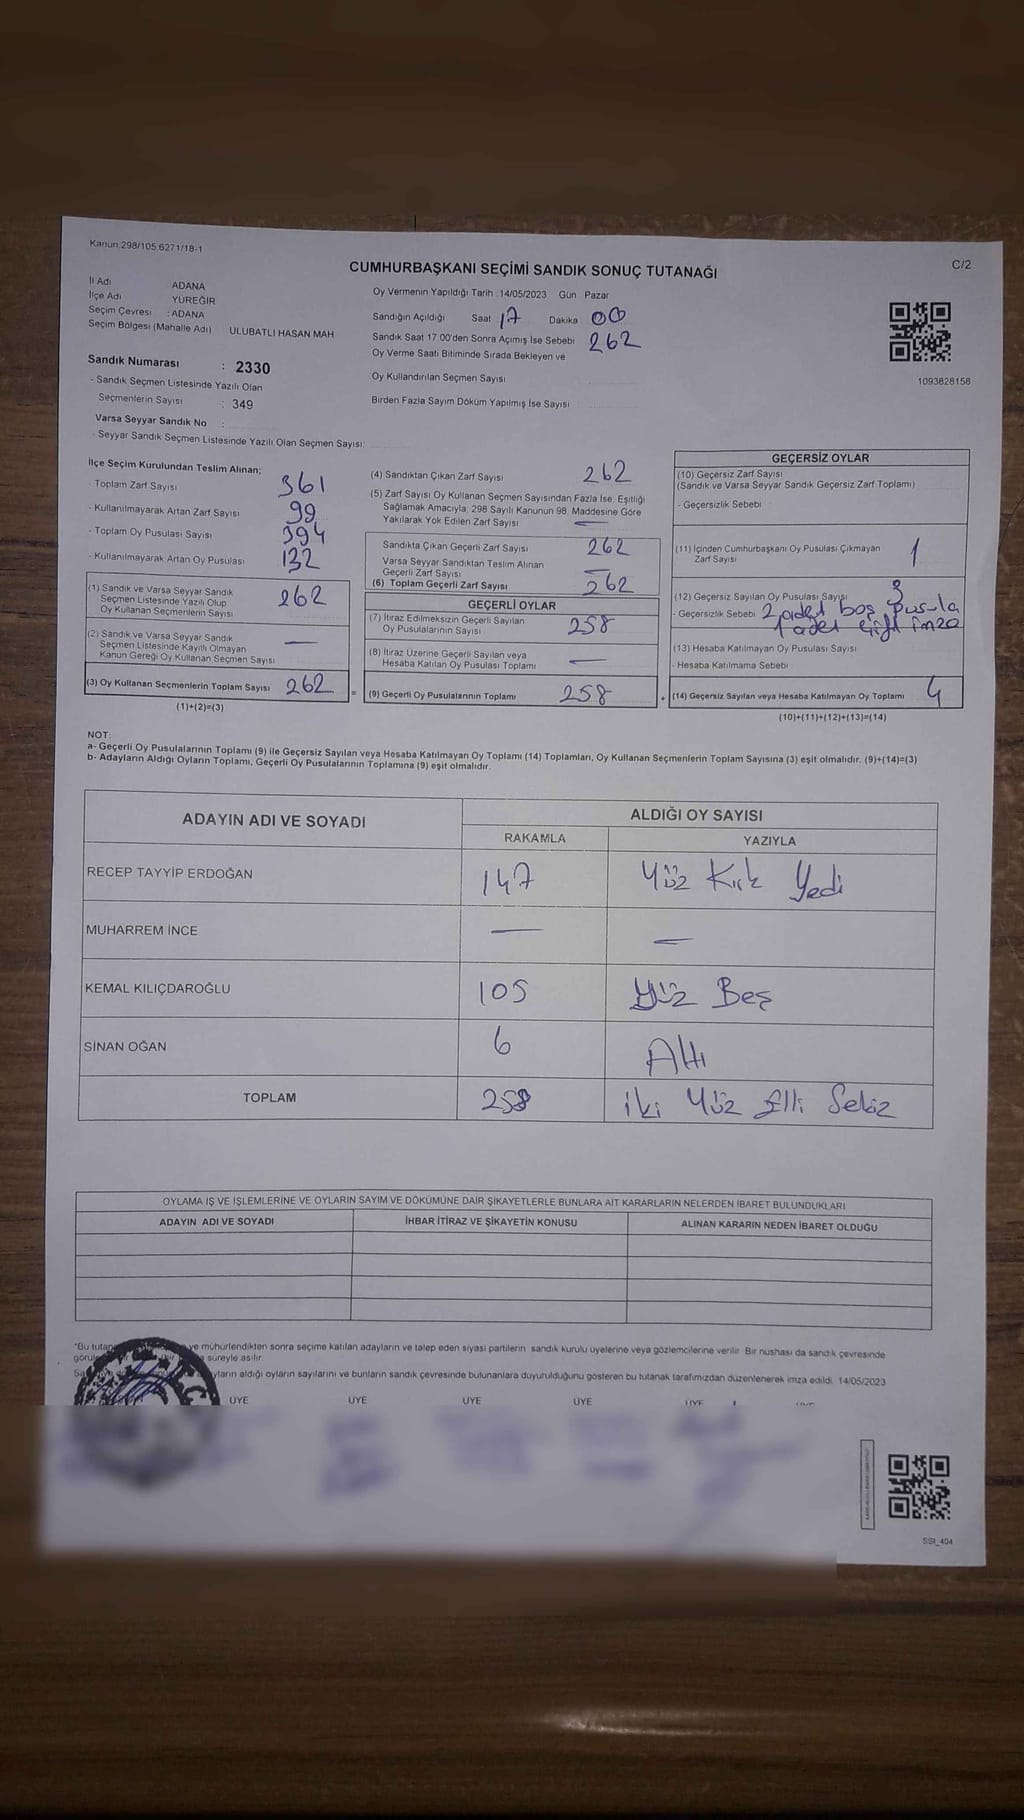 Kanun:298/105,6271/18-1
C/2
CUMHURBAŞKANI SEÇİMİ SANDIK SONUÇ TUTANAĞI
İl Adı ADANA
İlçe Adı YÜREĞİR
Seçim Çevresi : ADANA
Seçim Bölgesi (Mahalle Adı) ULUBATLI HASAN MAH
Sandık Numarası : 2330
- Sandık Seçmen Listesinde Yazılı Olan
Seçmenlerin Sayısı : 349
Varsa Seyyar Sandık No :
- Seyyar Sandık Seçmen Listesinde Yazılı Olan Seçmen Sayısı:
Oy Vermenin Yapıldığı Tarih : 14/05/2023 Gün Pazar
Sandığın Açıldığı Saat 17 Dakika 00
Sandık Saat 17:00'den Sonra Açımış İse Sebebi 262
Oy Verme Saati Bitiminde Sırada Bekleyen ve
Oy Kullandırılan Seçmen Sayısı
Birden Fazla Sayım Döküm Yapılmış İse Sayısı
1093828158
İlçe Seçim Kurulundan Teslim Alınan;
- Toplam Zarf Sayısı 361
- Kullanılmayarak Artan Zarf Sayısı 99
- Toplam Oy Pusulası Sayısı 394
- Kullanılmayarak Artan Oy Pusulası 132
(1) Sandık ve Varsa Seyyar Sandık
Seçmen Listesinde Yazılı Olup
Oy Kullanan Seçmenlerin Sayısı 262
(2) Sandık ve Varsa Seyyar Sandık
Seçmen Listesinde Kayıtlı Olmayan
Kanun Gereği Oy Kullanan Seçmen Sayısı —
(3) Oy Kullanan Seçmenlerin Toplam Sayısı 262
(1)+(2)=(3)
(4) Sandıktan Çıkan Zarf Sayısı 262
(5) Zarf Sayısı Oy Kullanan Seçmen Sayısından Fazla İse, Eşitliği
Sağlamak Amacıyla, 298 Sayılı Kanunun 98. Maddesine Göre
Yakılarak Yok Edilen Zarf Sayısı —
Sandıkta Çıkan Geçerli Zarf Sayısı 262
Varsa Seyyar Sandıktan Teslim Alınan
Geçerli Zarf Sayısı —
(6) Toplam Geçerli Zarf Sayısı 262
GEÇERLİ OYLAR
(7) İtiraz Edilmeksizin Geçerli Sayılan
Oy Pusulalarının Sayısı 258
(8) İtiraz Üzerine Geçerli Sayılan veya
Hesaba Katılan Oy Pusulası Toplamı —
= (9) Geçerli Oy Pusulalarının Toplamı 258
GEÇERSİZ OYLAR
(10) Geçersiz Zarf Sayısı
(Sandık ve Varsa Seyyar Sandık Geçersiz Zarf Toplamı)
- Geçersizlik Sebebi :
(11) İçinden Cumhurbaşkanı Oy Pusulası Çıkmayan
Zarf Sayısı 1
(12) Geçersiz Sayılan Oy Pusulası Sayısı 3
- Geçersizlik Sebebi 2 adet boş pusula
1 adet çift imza
(13) Hesaba Katılmayan Oy Pusulası Sayısı
- Hesaba Katılmama Sebebi
+ (14) Geçersiz Sayılan veya Hesaba Katılmayan Oy Toplamı 4
(10)+(11)+(12)+(13)=(14)
NOT:
a- Geçerli Oy Pusulalarının Toplamı (9) ile Geçersiz Sayılan veya Hesaba Katılmayan Oy Toplamı (14) Toplamları, Oy Kullanan Seçmenlerin Toplam Sayısına (3) eşit olmalıdır. (9)+(14)=(3)
b- Adayların Aldığı Oyların Toplamı, Geçerli Oy Pusulalarının Toplamına (9) eşit olmalıdır.
ADAYIN ADI VE SOYADI ALDIĞI OY SAYISI
RAKAMLA YAZIYLA
RECEP TAYYİP ERDOĞAN 147 Yüz Kırk Yedi
MUHARREM İNCE — —
KEMAL KILIÇDAROĞLU 105 Yüz Beş
SİNAN OĞAN 6 Altı
TOPLAM 258 iki Yüz Elli Sekiz
OYLAMA İŞ VE İŞLEMLERİNE VE OYLARIN SAYIM VE DÖKÜMÜNE DAİR ŞİKAYETLERLE BUNLARA AİT KARARLARIN NELERDEN İBARET BULUNDUKLARI
ADAYIN ADI VE SOYADI İHBAR İTİRAZ VE ŞİKAYETİN KONUSU ALINAN KARARIN NEDEN İBARET OLDUĞU
"Bu ve mühürlendikten sonra seçime katılan adayların ve talep eden siyasi partilerin sandık kurulu üyelerine veya gözlemcilerine verilir. Bir nüshası da sandık çevresinde
süreyle asılır.
aldığı oyların sayılarını ve bunların sandık çevresinde bulunanlara duyurulduğunu gösteren bu tutanak tarafımızdan düzenlenerek imza edildi. 14/05/2023
ÜYE ÜYE ÜYE ÜYE ÜYE
SSI_404